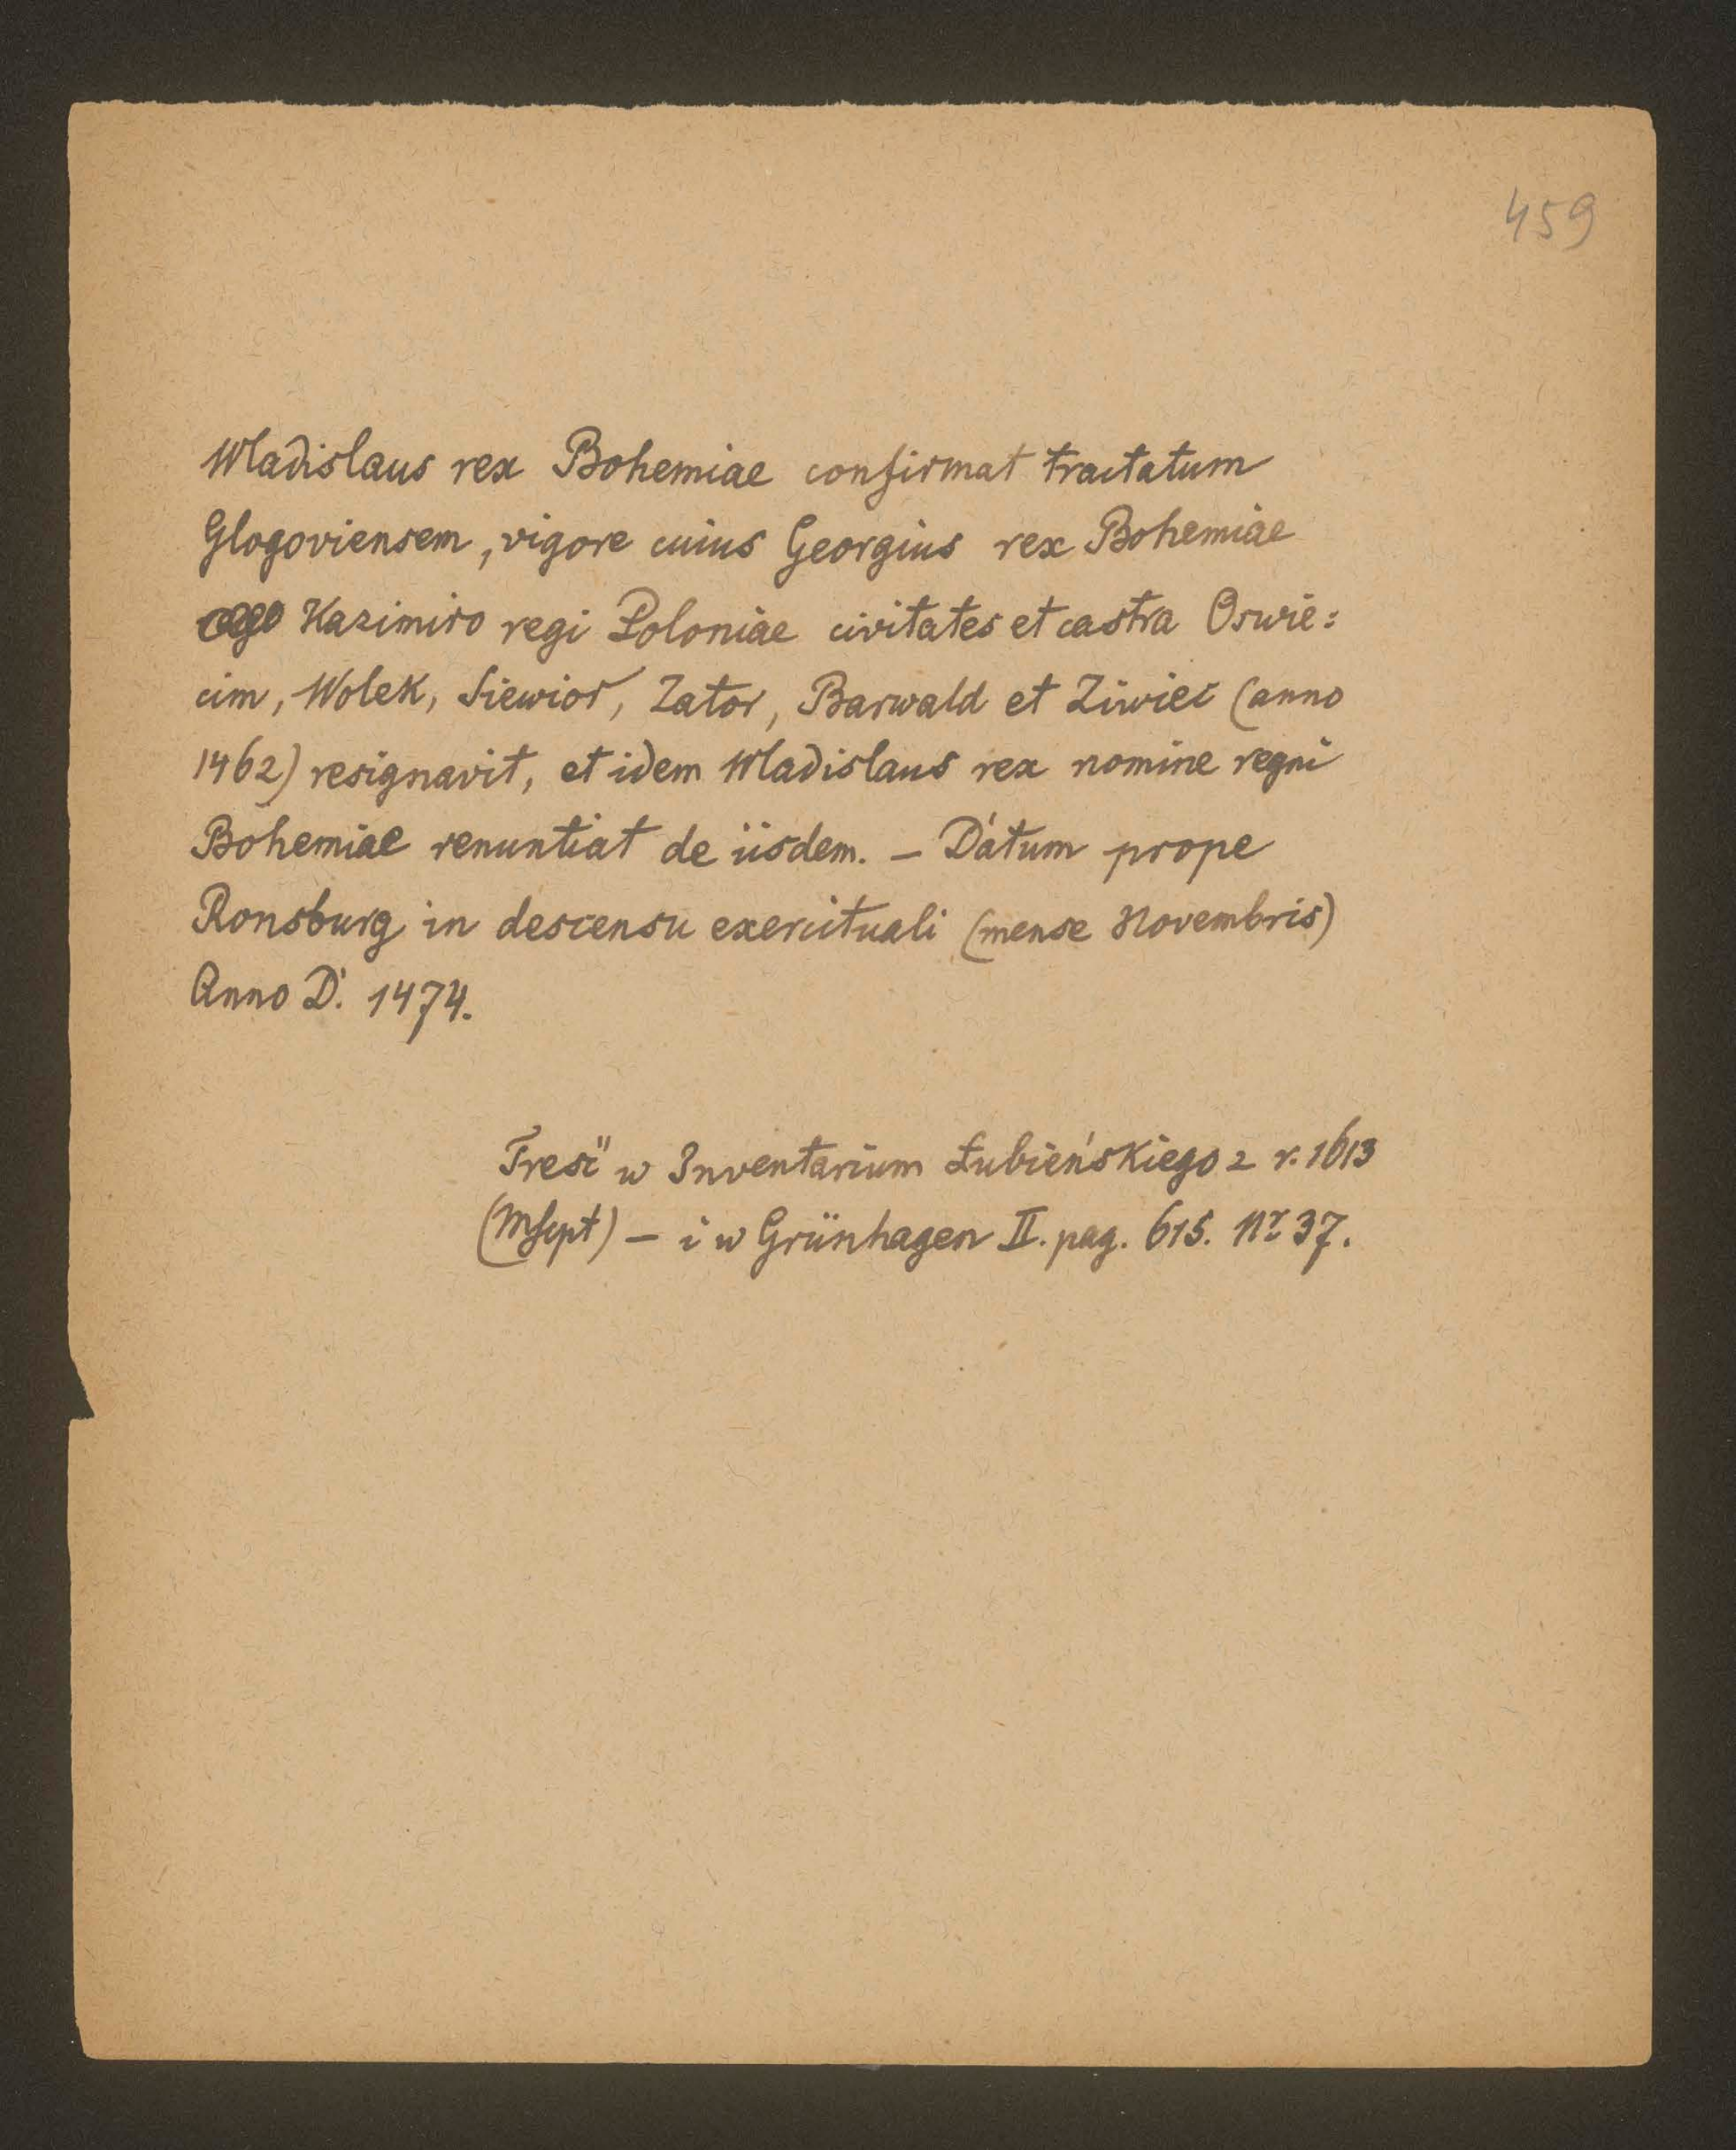 459
Wladislaus rex Bohemiae confirmat tractatum
Glogoviensem, vigore cuius Georgius rex Bohemiae
Kazimiro regi Poloniae civitates et castra Oswie:
cim, Wolek, Siewior, Zator, Barwald et Ziwiec (anno
1462) resignavit, et idem Wladislaus rex nomine regni
Bohemiae renuntiat de iisdem. – Datum prope
Ronsburg in descensu exercituali (mense Novembris)
Anno D. 1474.
Treść w Inventarium Łubieńskiego z r. 1613
(Mscpt) – i w Grünhagen II. pag. 615. Nr 37.